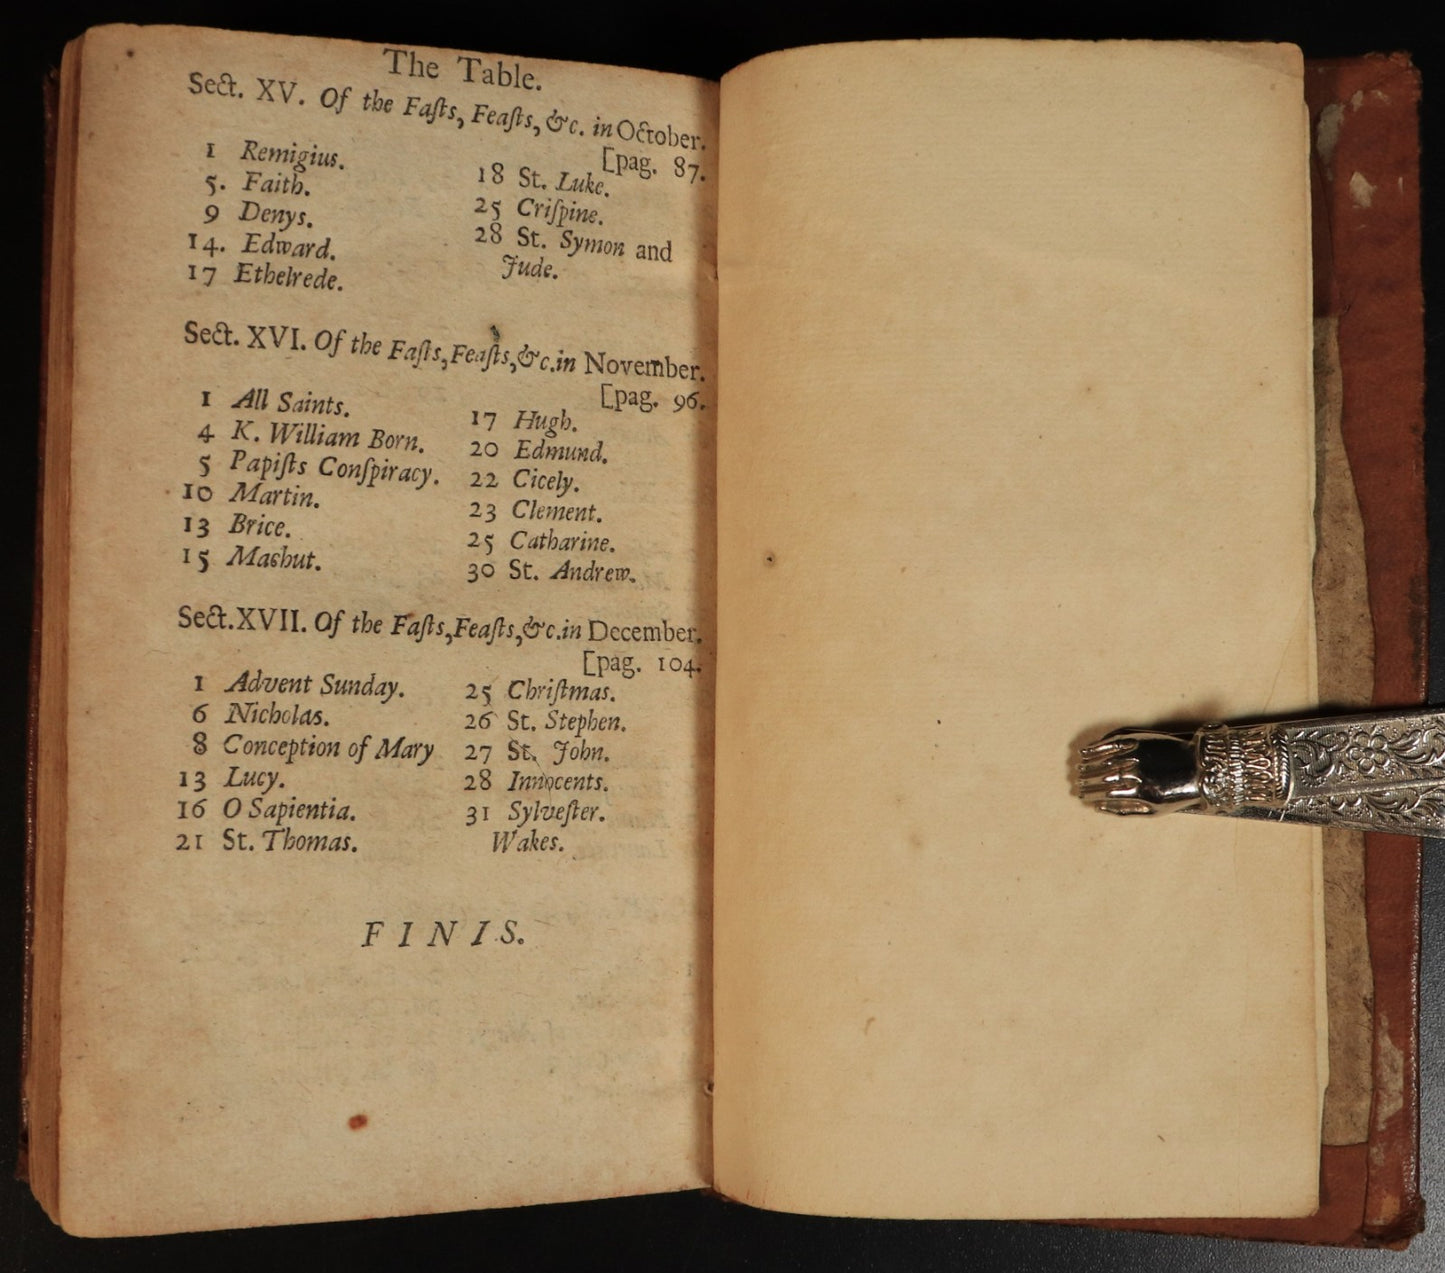 The Table.
Sect. XV. Of the Faſts, Feaſts, &c. in October.
[pag. 87.
1 Remigius.
5. Faith.
9 Denys.
14. Edward.
17 Ethelrede.
18 St. Luke.
25 Criſpine.
28 St. Symon and
Jude.
Sect. XVI. Of the Faſts, Feaſts, &c. in November.
[pag. 96.
1 All Saints.
4 K. William Born.
5 Papiſts Conſpiracy.
10 Martin.
13 Brice.
15 Machut.
17 Hugh.
20 Edmund.
22 Cicely.
23 Clement.
25 Catharine.
30 St. Andrew.
Sect. XVII. Of the Faſts, Feaſts, &c. in December.
[pag. 104.
1 Advent Sunday.
6 Nicholas.
8 Conception of Mary
13 Lucy.
16 O Sapientia.
21 St. Thomas.
25 Chriſtmas.
26 St. Stephen.
27 St. John.
28 Innocents.
31 Sylveſter.
Wakes.
FINIS.